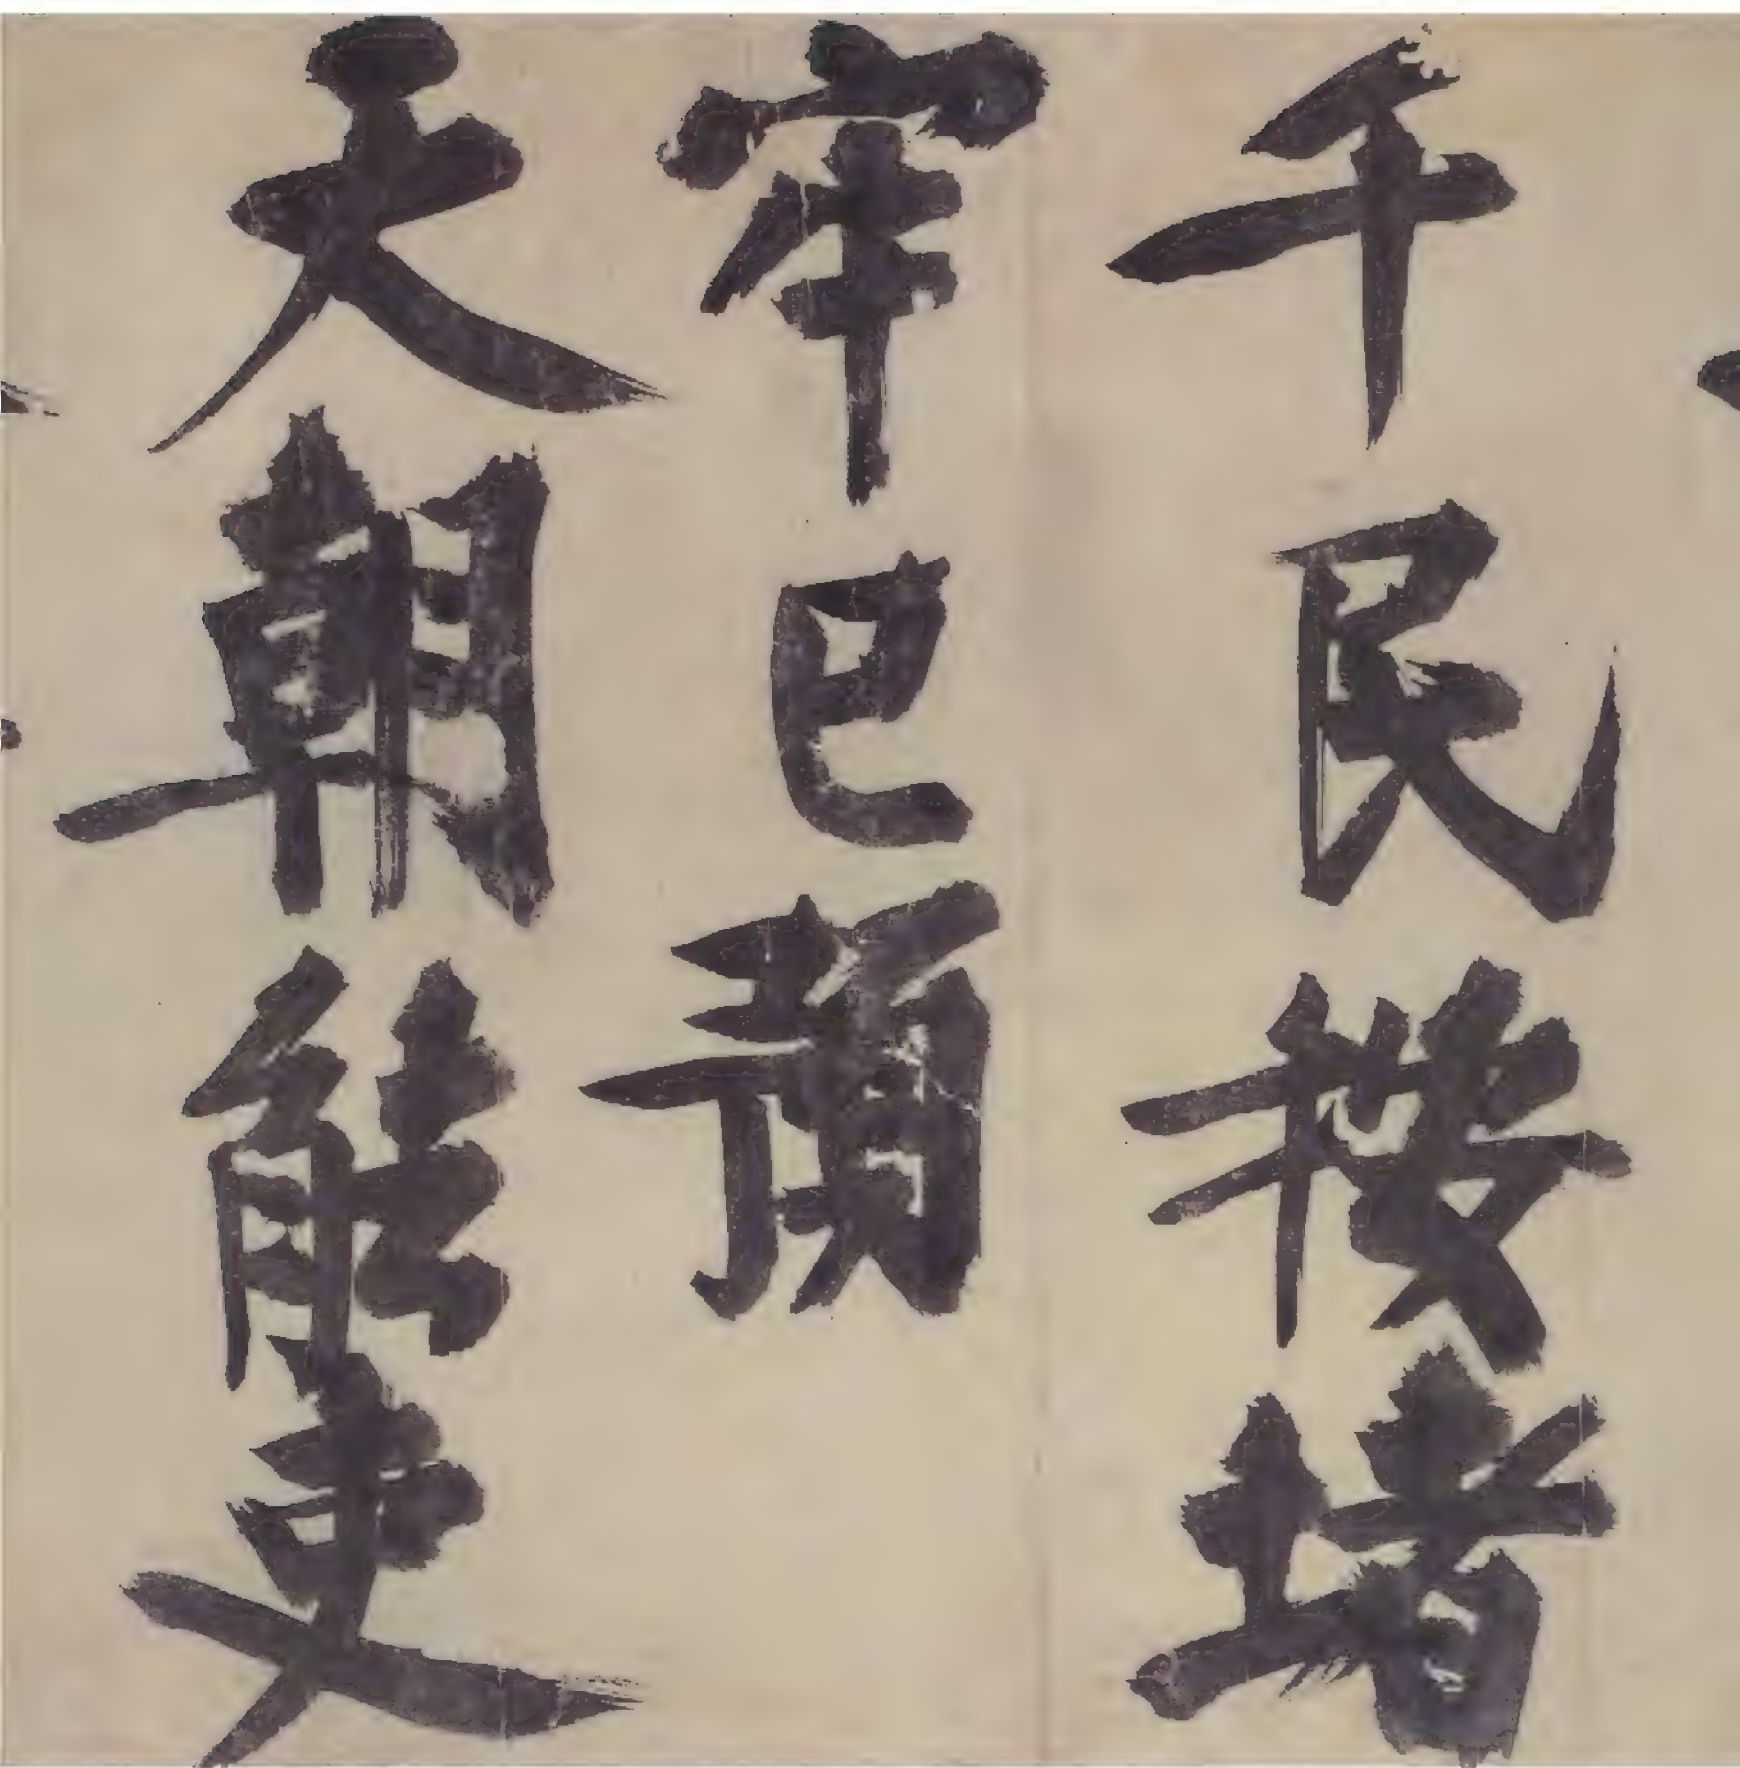 千民按堵
牢已
天朝能吏